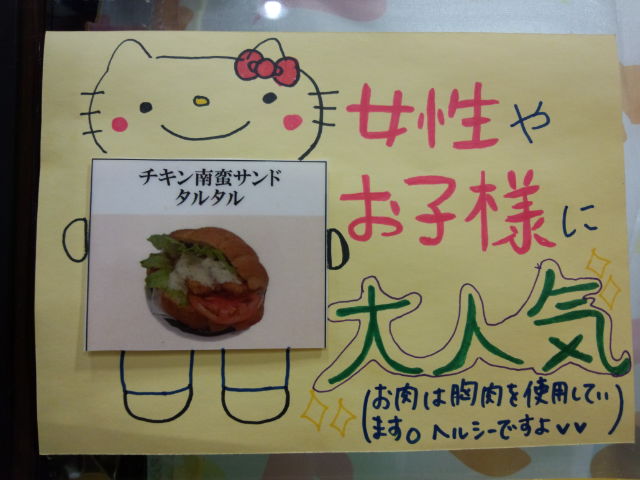 女性や
お子様に
大人気
(お肉は胸肉を使用してい
ます。ヘルシーですよ♥♥)
チキン南蛮サンド
タルタル